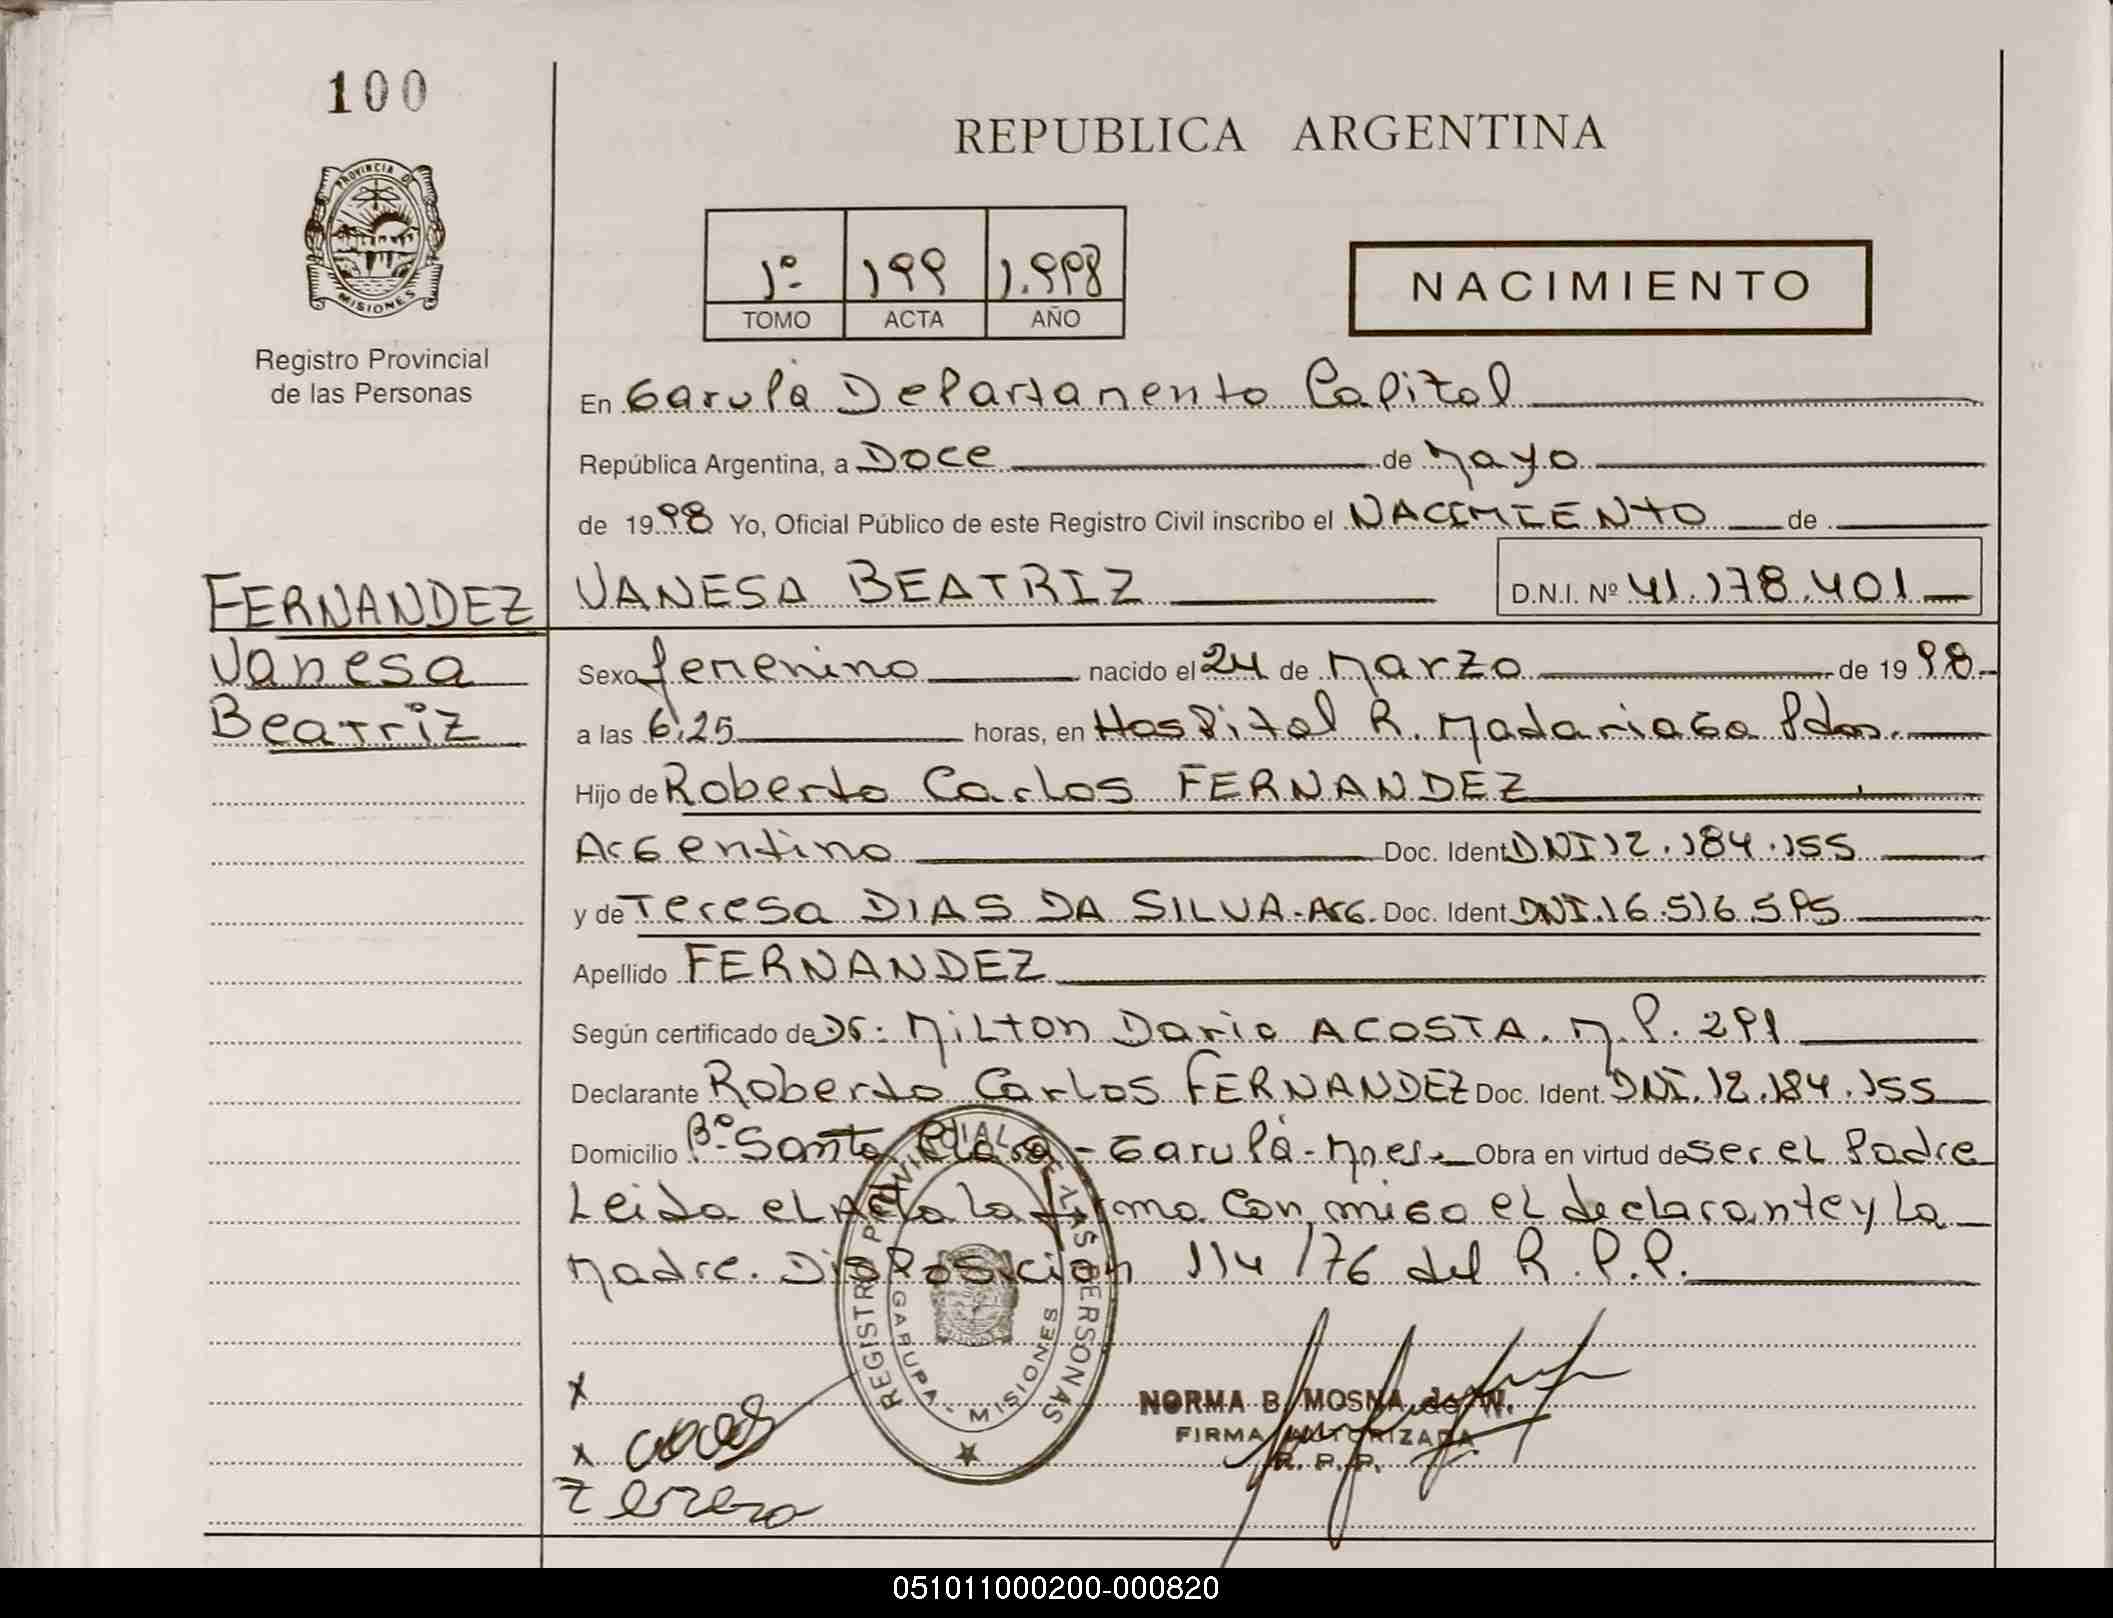 100
PROVINCIA DE
MISIONES
Registro Provincial
de las Personas
REPUBLICA ARGENTINA
1º 199 1.998
TOMO ACTA AÑO
NACIMIENTO
En Garupá Departamento Capital
República Argentina, a Doce de Mayo
de 1998 Yo, Oficial Público de este Registro Civil inscribo el NACIMIENTO de
FERNANDEZ VANESA BEATRIZ D.N.I. Nº 41.178.401
Vanesa
Beatriz
Sexo femenino nacido el 24 de Marzo de 1998
a las 6:25 horas, en Hospital R. Madariaga Pdas.
Hijo de Roberto Carlos FERNANDEZ
Argentino Doc. Ident. DNI 12.184.155
y de Teresa DIAS DA SILVA - Arg. Doc. Ident. DNI. 16.516.595
Apellido FERNANDEZ
Según certificado de Dr: Milton Dario ACOSTA. M.P. 291
Declarante Roberto Carlos FERNANDEZ Doc. Ident. DNI. 12.184.155
Domicilio Bº Santa Clara - Garupá - Mnes. Obra en virtud de ser el Padre
Leida el Acta la firma con migo el declarante y la
Madre. Disposición 114/76 del R.P.P.
REGISTRO PROVINCIAL DE LAS PERSONAS
GARUPA - MISIONES
X
X
NORMA B. MOSNA de W.
FIRMA AUTORIZADA
R. P. P.
051011000200-000820